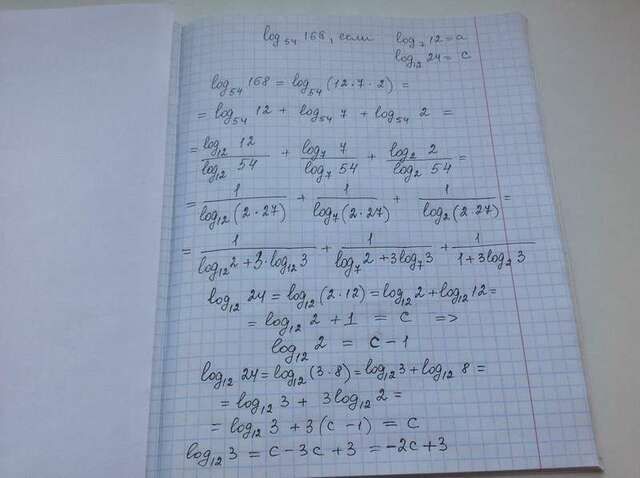 log₅₄ 168, если log₇ 12 = a
log₁₂ 24 = c
log₅₄ 168 = log₅₄ (12 · 7 · 2) =
= log₅₄ 12 + log₅₄ 7 + log₅₄ 2 =
= log₁₂ 12 / log₁₂ 54 + log₇ 7 / log₇ 54 + log₂ 2 / log₂ 54 =
= 1 / log₁₂ (2 · 27) + 1 / log₇ (2 · 27) + 1 / log₂ (2 · 27) =
= 1 / log₁₂ 2 + 3 · log₁₂ 3 + 1 / log₇ 2 + 3 log₇ 3 + 1 / 1 + 3 log₂ 3
log₁₂ 24 = log₁₂ (2 · 12) = log₁₂ 2 + log₁₂ 12 =
= log₁₂ 2 + 1 = c =>
log₁₂ 2 = c - 1
log₁₂ 24 = log₁₂ (3 · 8) = log₁₂ 3 + log₁₂ 8 =
= log₁₂ 3 + 3 log₁₂ 2 =
= log₁₂ 3 + 3 (c - 1) = c
log₁₂ 3 = c - 3c + 3 = -2c + 3